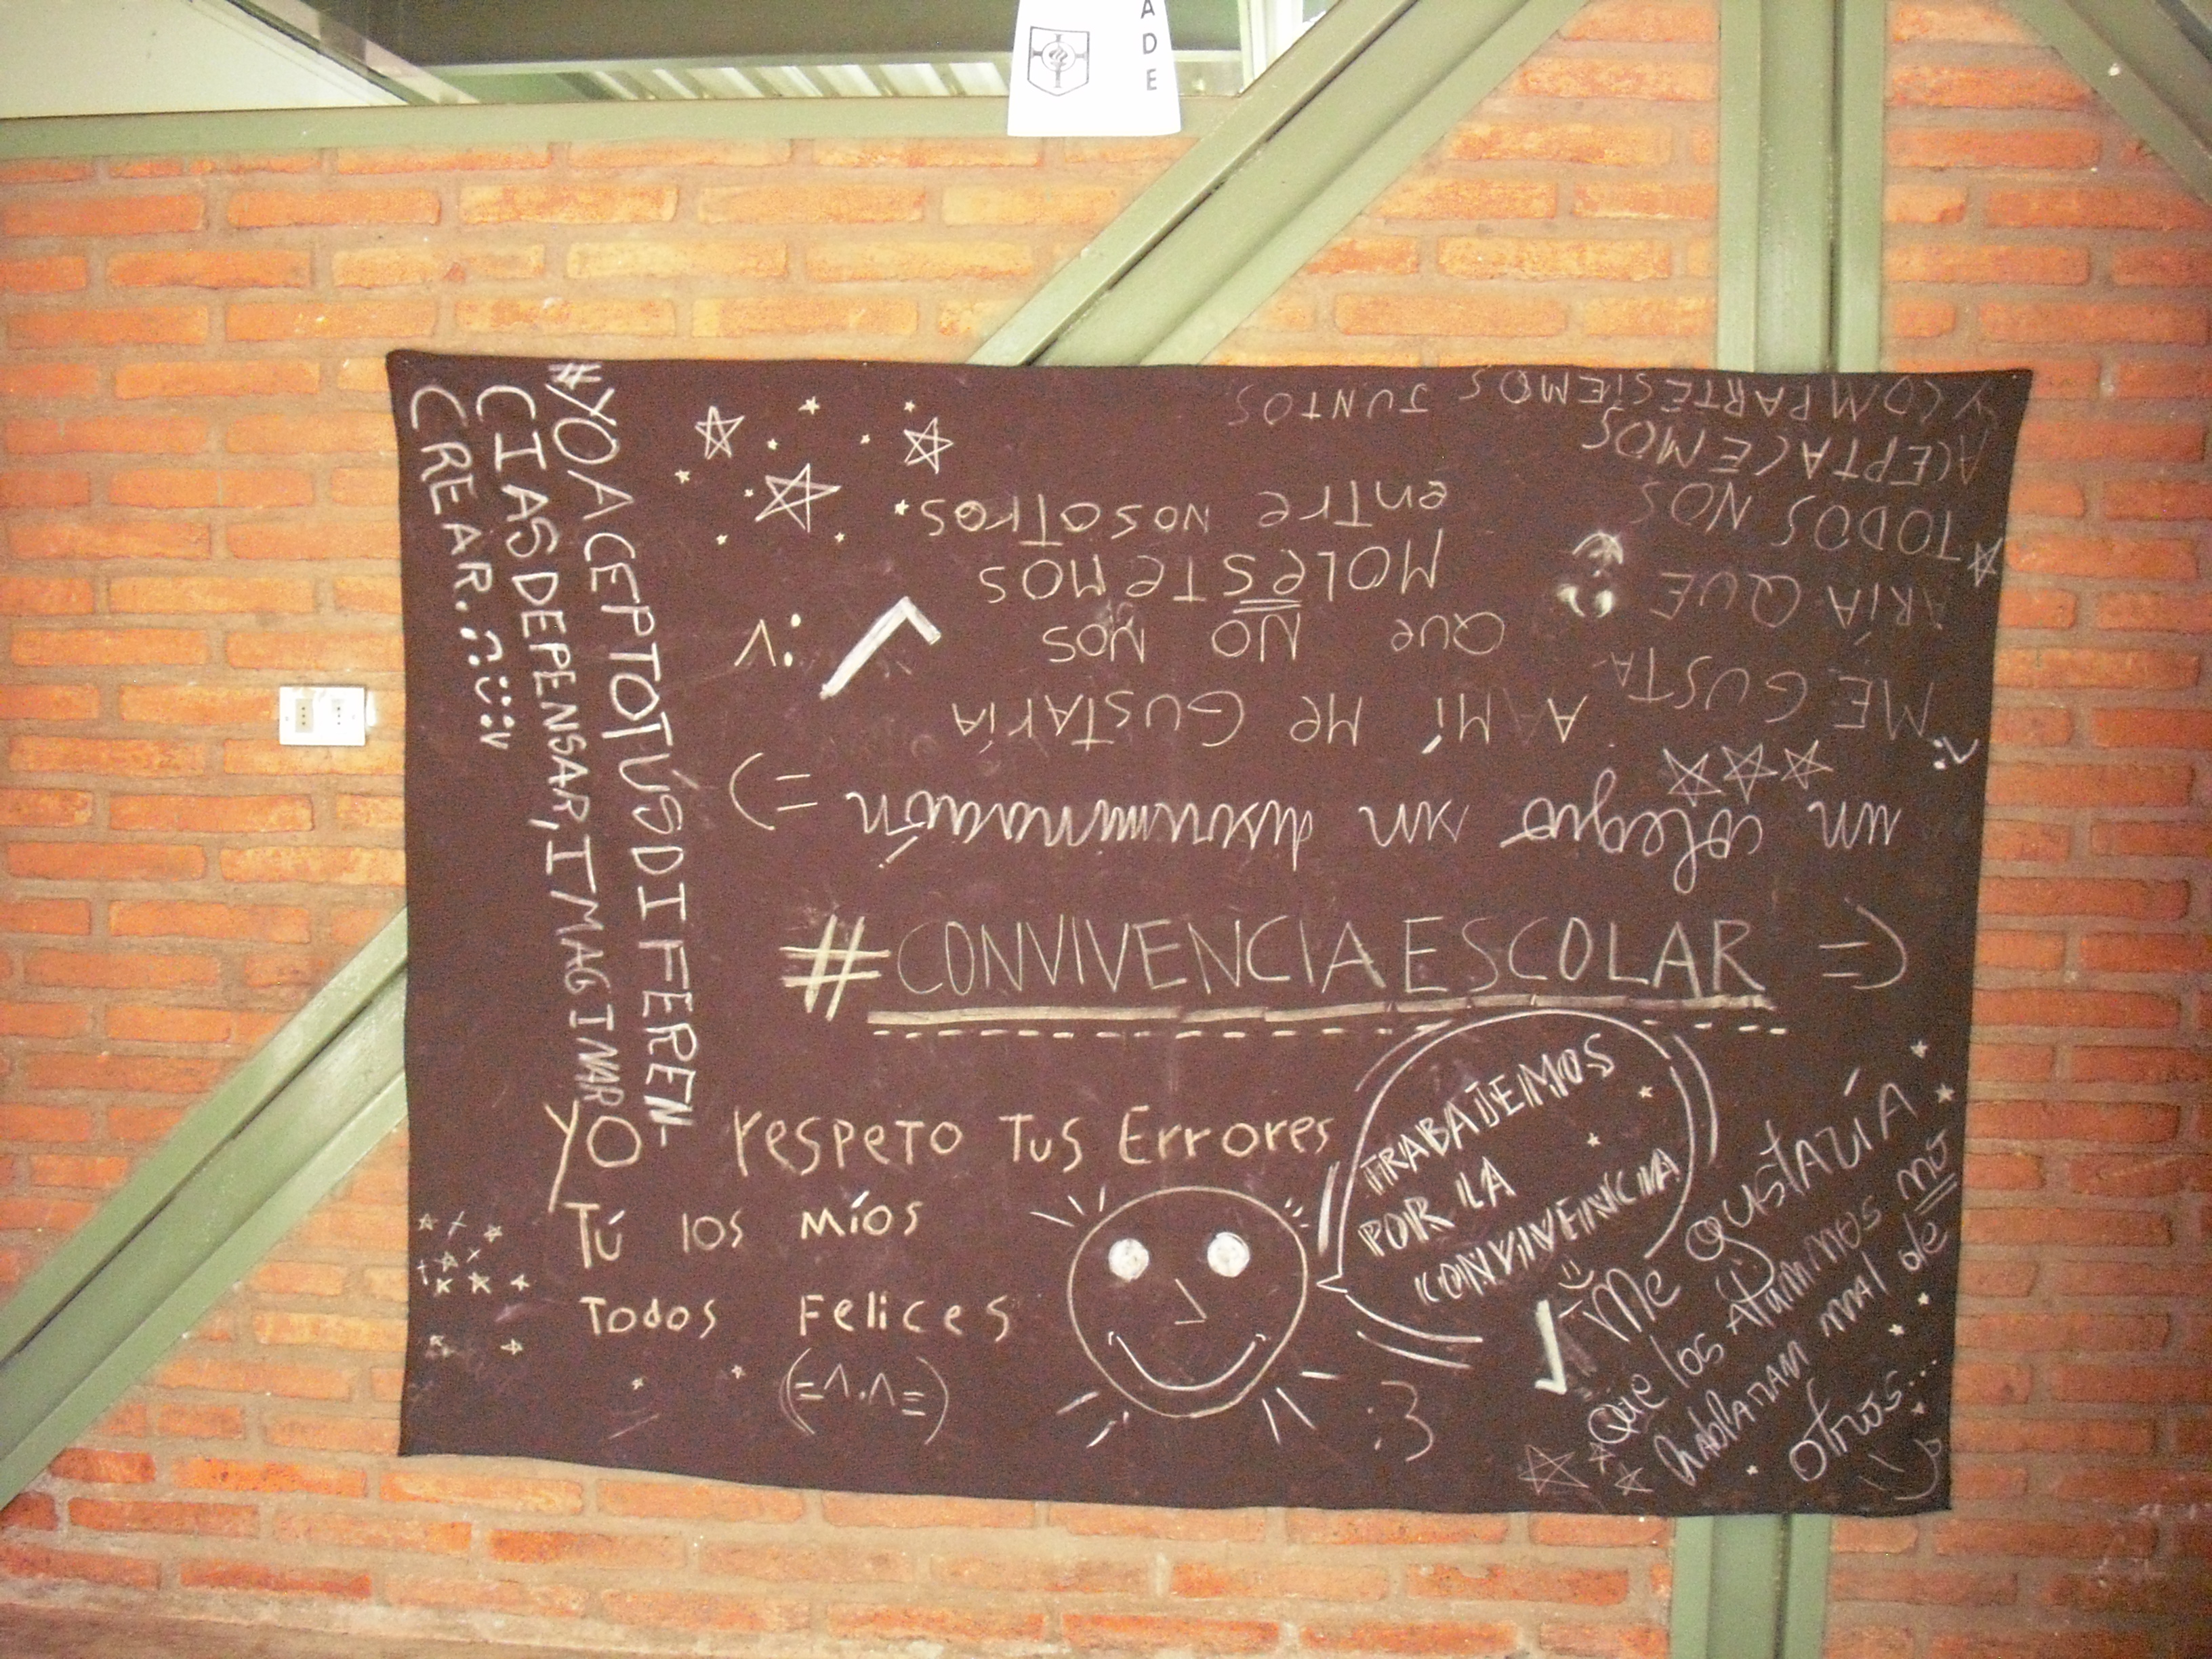 A
D
E
#YO ACEPTO TUS DIFEREN-
CIAS DE PENSAR, IMAGINAR O
CREAR.
ME GUSTA-
ARÍA QUE
TODOS NOS
ACEPTACEMOS
Y COMPARTESIEMOS JUNTOS
A MÍ ME GUSTARÍA
QUE NO NOS
MOLESTEMOS
ENTRE NOSOTROS
:v
un colegio sin discriminación =)
#CONVIVENCIA ESCOLAR =)
YO respeto Tus Errores
Tú los míos
Todos Felices
(=^.^=)
TRABAJEMOS
POR LA
CONVIVENCIA
:3
Me gustaría
que los alumnos no
hablaran mal de
otros...